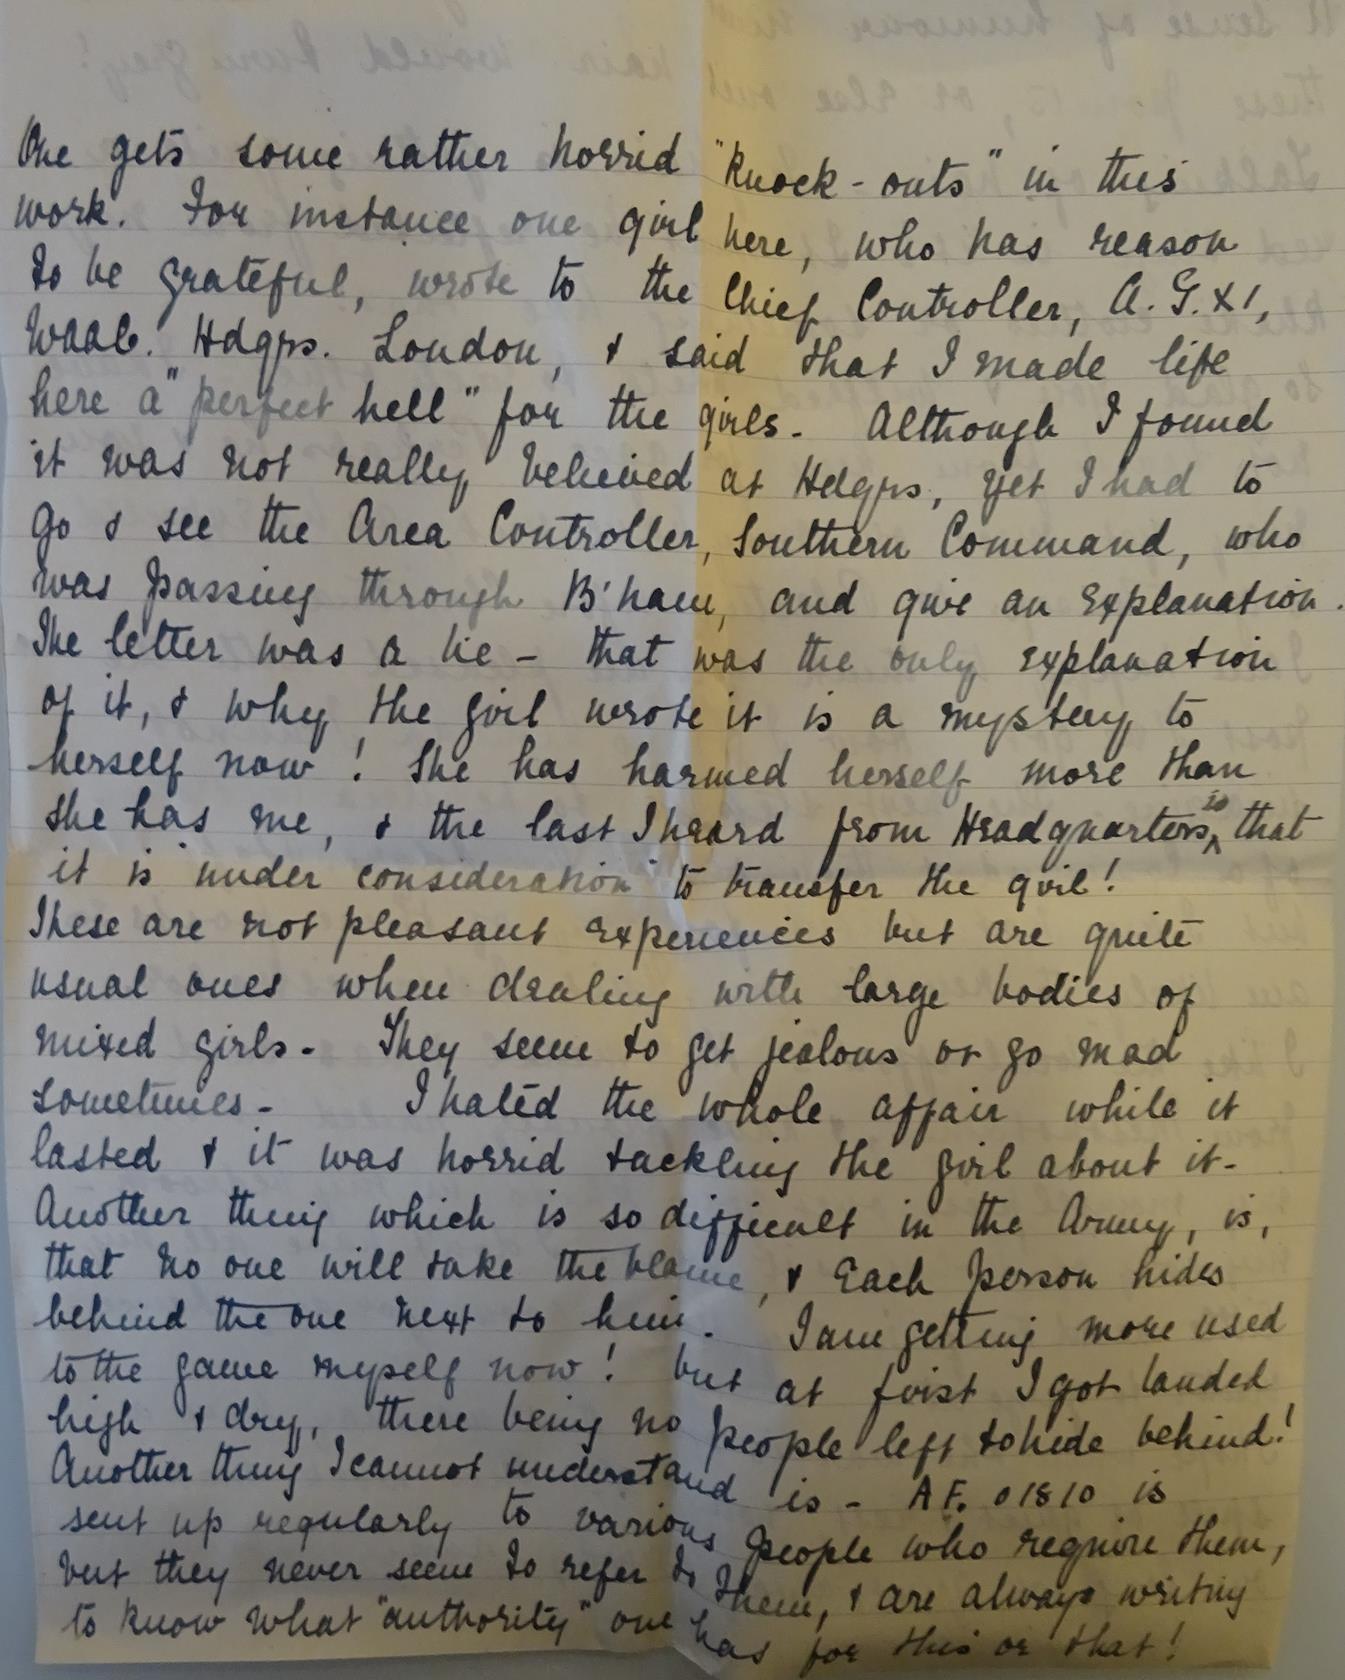 One gets some rather horrid "knock-outs" in this
work. For instance one girl here, who has reason
to be grateful, wrote to the Chief Controller, A.G.XI,
WAAC. Hdqrs. London, & said that I made life
here a "perfect hell" for the girls. Although I found
it was not really believed at Hdqrs, yet I had to
go & see the Area Controller, Southern Command, who
was passing through B'ham, and give an explanation.
The letter was a lie - that was the only explanation
of it, & why the girl wrote it is a mystery to
herself now! She has harmed herself more than
she has me, & the last I heard from Headquarters is that
it is "under consideration" to transfer the girl!
These are not pleasant experiences but are quite
usual ones when dealing with large bodies of
mixed girls. They seem to get jealous or go mad
sometimes. I hated the whole affair while it
lasted & it was horrid tackling the girl about it.
Another thing which is so difficult in the Army, is,
that no one will take the blame, & each person hides
behind the one next to him. I am getting more used
to the game myself now! but at first I got landed
high & dry, there being no people left to hide behind!
Another thing I cannot understand is - AF. 01810 is
sent up regularly to various people who require them,
but they never seem to refer to them, & are always writing
to know what "authority" one has for this or that!